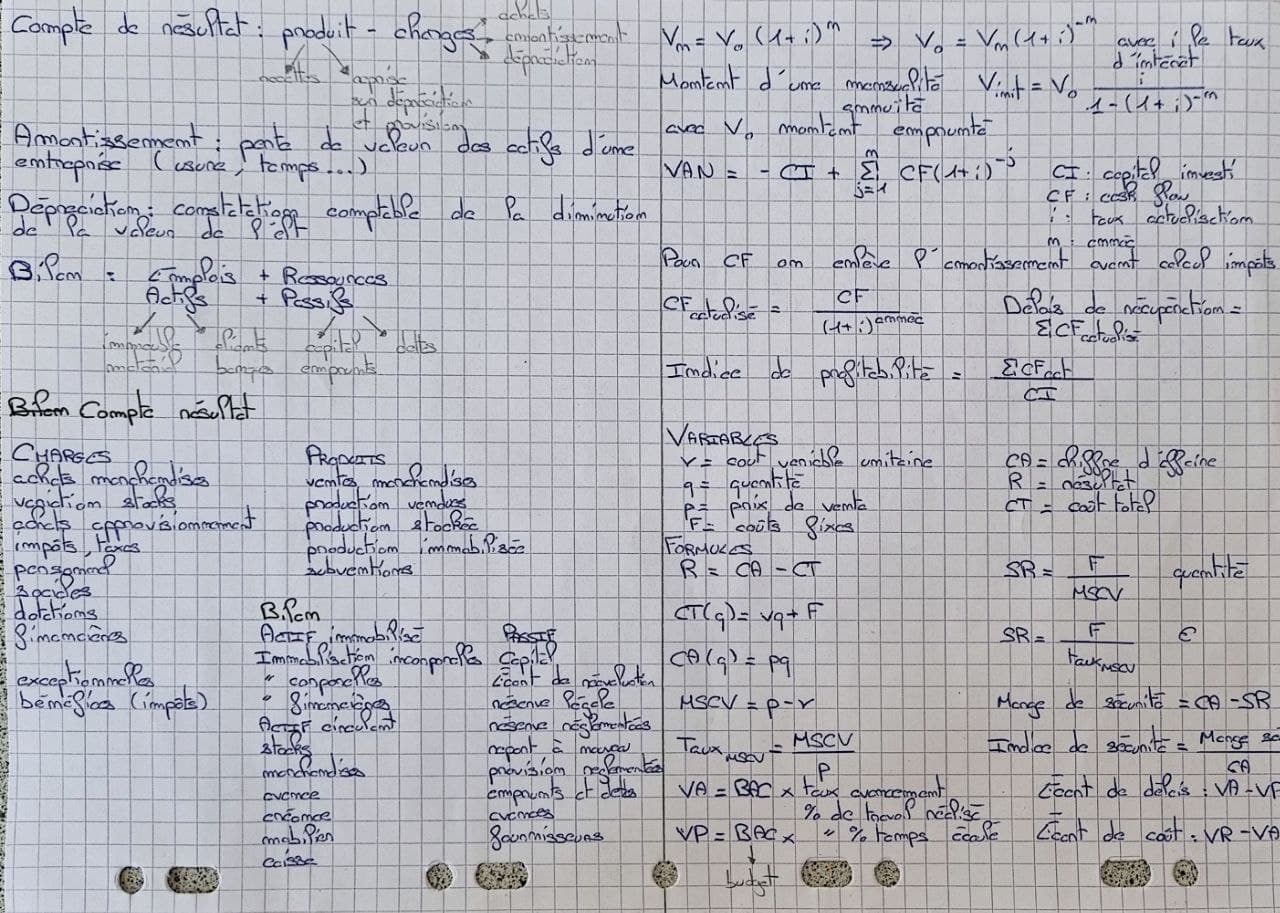 Compte de résultat : produit - charges
achats
amortissement
dépréciation
recettes
reprise
sur dépréciation
et provision
Amortissement : perte de valeur des actifs d'une
entreprise (usure, temps...)
Dépreciation : constatation comptable de la diminution
de la valeur de l'élt
Bilan = Emplois + Ressources
Actifs + Passifs
immeuble clients capital dettes
matériel banques emprunts
Bilan Compte résultat
CHARGES
achats marchandises
variation stocks
achats approvisionnement
impôts, taxes
personnel
sociales
dotations
financières
exceptionnelles
bénéfices (impôts)
PRODUITS
ventes marchandises
production vendues
production stockée
production immobilisée
subventions
Bilan
ACTIF immobilisé
Immobilisation incorporelles
" corporelles
" financières
ACTIF circulant
stocks
marchandises
avance
créance
mobilier
caisse
PASSIF
Capital
Écart de réévaluation
réserve légale
réserve réglementées
report à nouveau
provision reglementés
emprunts et dettes
avances
fournisseurs
Vn = V0 (1+i)^n ⇒ V0 = Vn (1+i)^-n avec i le taux
d'intérêt
Montant d'une mensualité Vinit = V0 i / (1-(1+i)^-n)
annuité
avec V0 montant emprunté
VAN = - CI + Σ(j=1 à n) CF(1+i)^-j CI : capital investi
CF : cash flow
i : taux actualisation
n : année
Pour CF on enlève l'amortissement avant calcul impôts
CFactualisé = CF / (1+i)^année Délais de récupération =
ΣCFactualisé
Indice de profitabilité = ΣCFact / CI
VARIABLES
v = cout variable unitaire CA = chiffre d'affaire
q = quantité R = résultat
p = prix de vente CT = coût total
F = coûts fixes
FORMULES
R = CA - CT SR = F / MSCV quantité
CT(q) = vq + F
SR = F / tauxMSCV €
CA(q) = pq
MSCV = p - v Marge de sécurité = CA - SR
TauxMSCV = MSCV / P Indice de sécurité = Marge sé / CA
VA = BAC × taux avancement Écart de délais : VA - VP
% de travail réalisé
VP = BAC × " % temps écoulé Écart de coût : VR - VA
budget